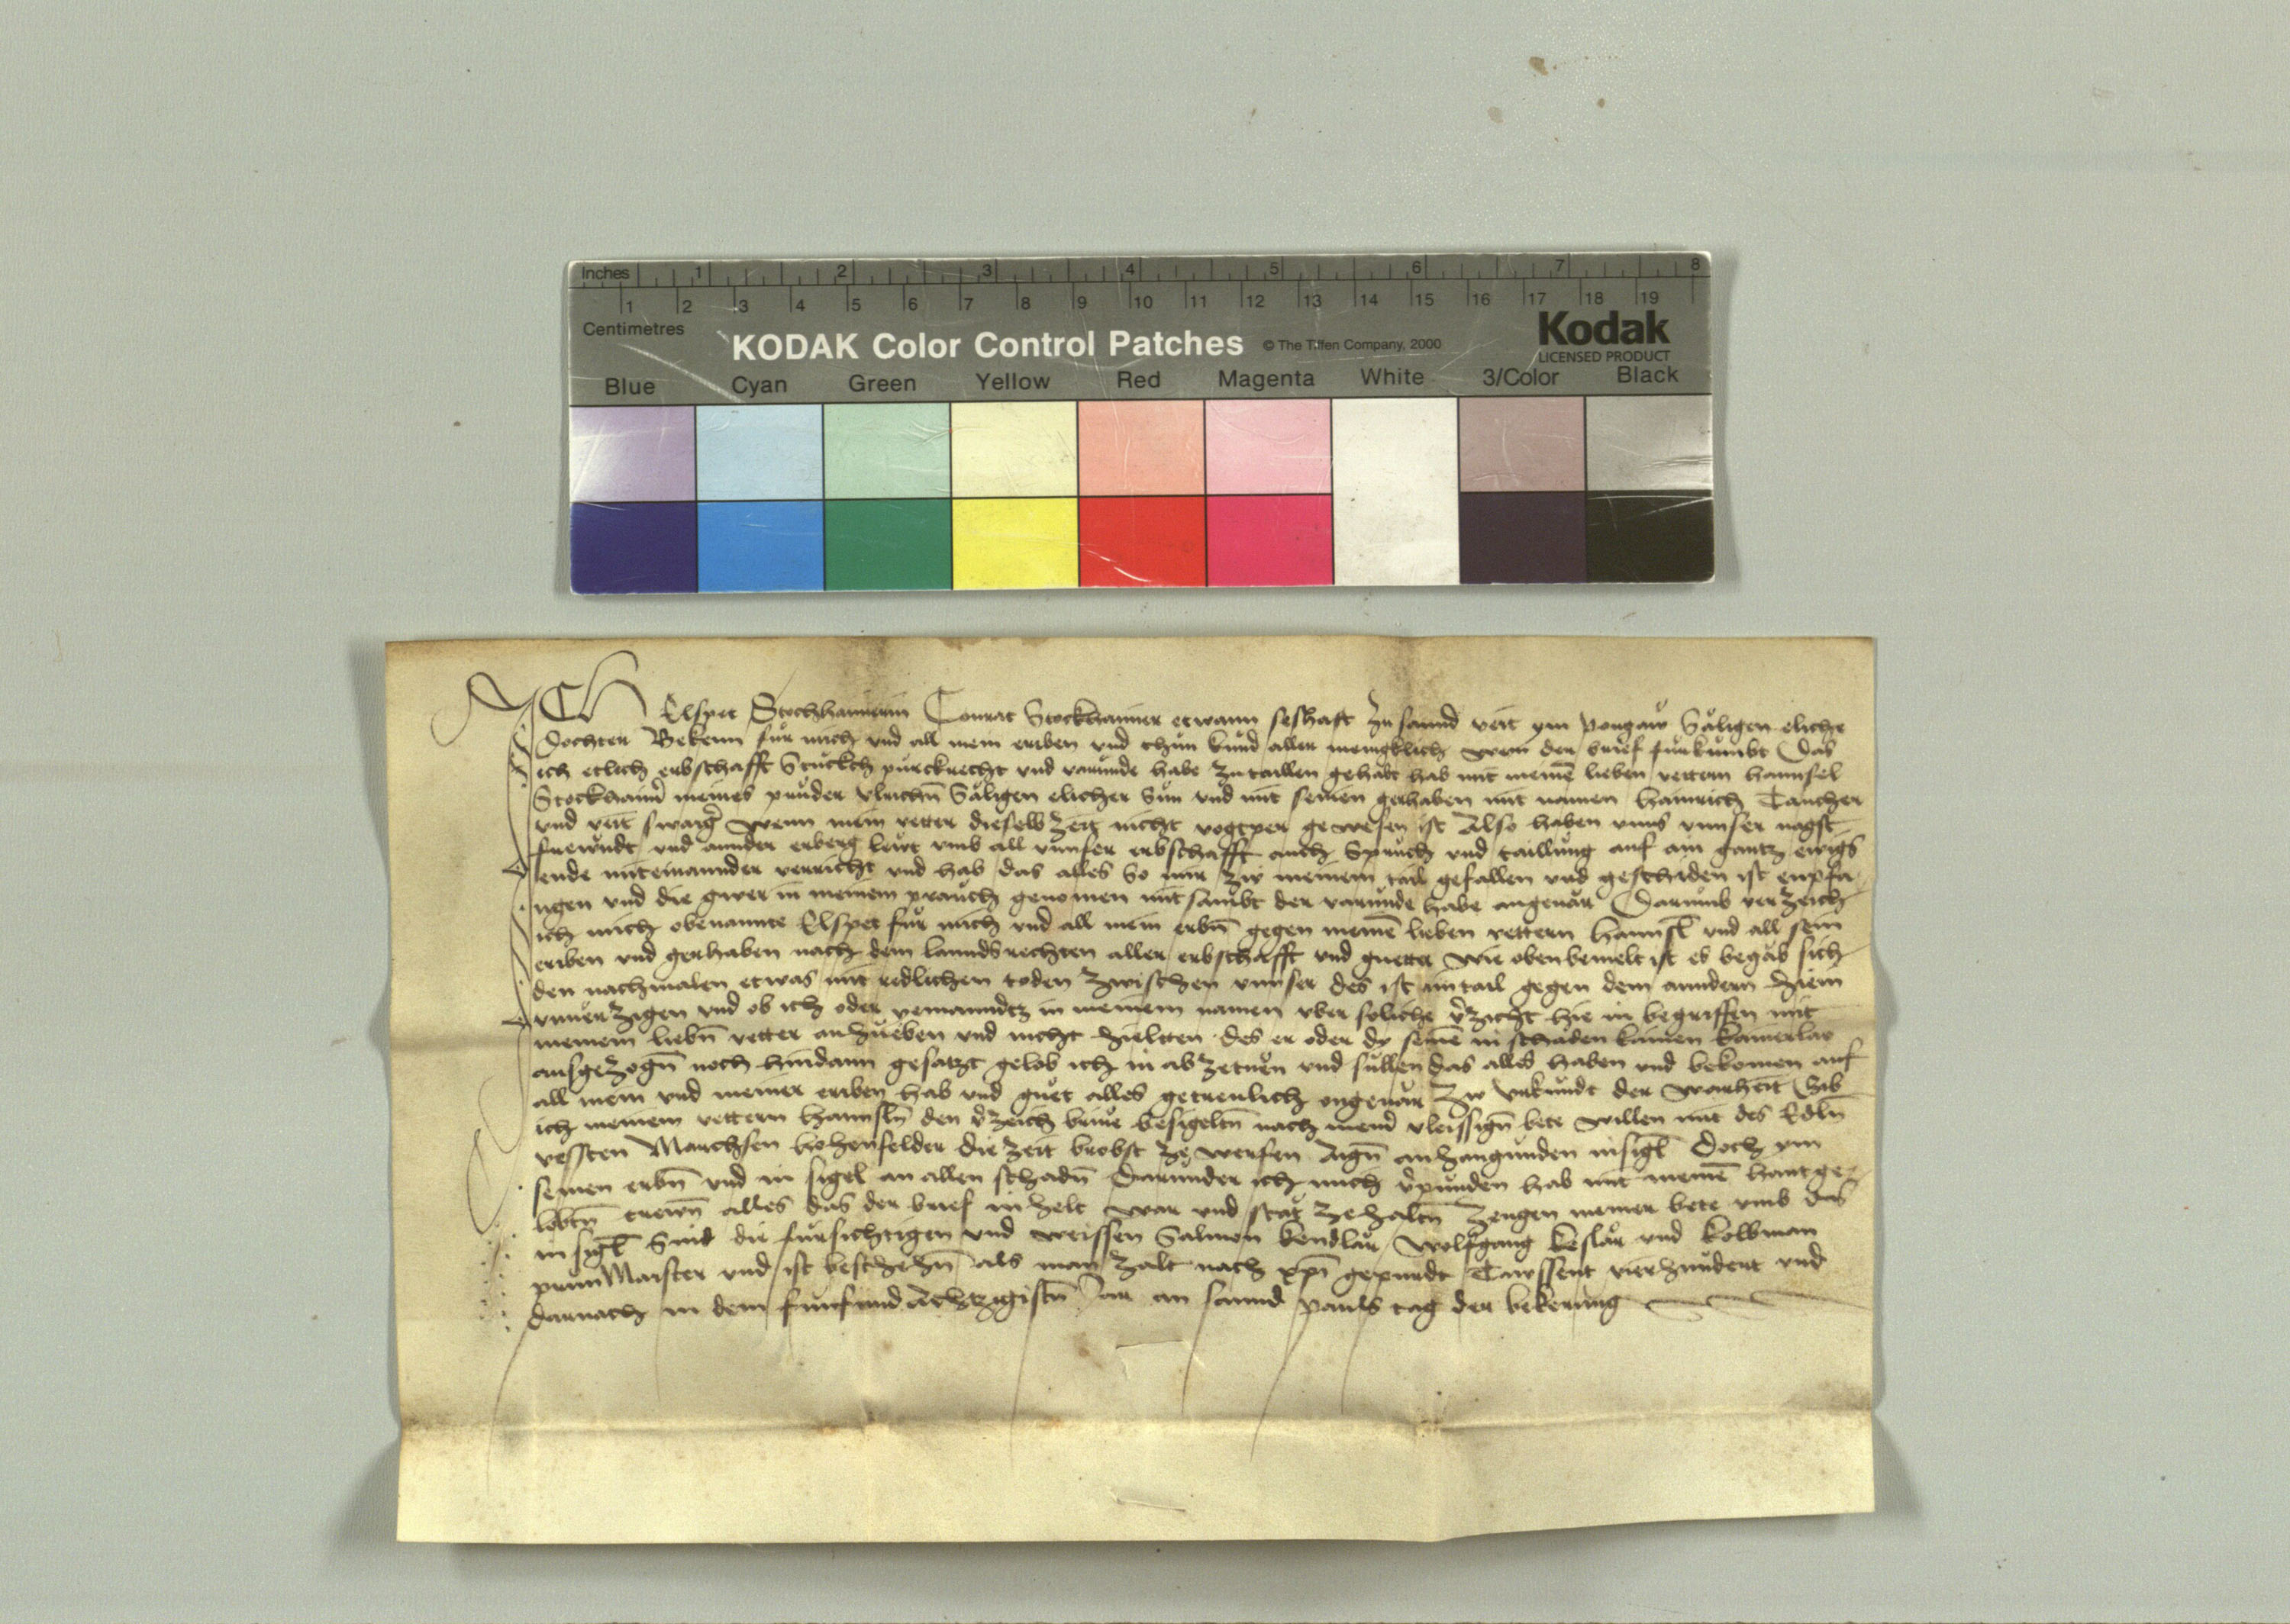 Inches 1 2 3 4 5 6 7 8
1 2 3 4 5 6 7 8 9 10 11 12 13 14 15 16 17 18 19
Centimetres
KODAK Color Control Patches © The Tiffen Company, 2000 Kodak
LICENSED PRODUCT
Blue Cyan Green Yellow Red Magenta White 3/Color Black
ICh Elspet Stockhaimerin Conrat Stockhaimer etwann seshaft zu sannd veit ym pongaw Säligen eliche
dochter Bekenn für mich vnd all mein eriben vnd thün kund aller menigklich wem der brief fürkumbt Das
ich etlich erbschafft Stückch pürckrecht vnd varunde habe zu taillen gehabt hab mit meinē lieben vettern hannsel
Stockhaimer meines prüder vlrichñ Säligen elicher Sün vnd mit seinen gerhaben mit namen hainrich Taucher
vnd veit swaiger wenn mein vetter dieselb zeit nicht vogtper gewesen ist Also haben vnns vnnser nagst
frewndt vnd annder erberg lewt vmb all vnnser erbschafft auch Sprüch vnd taillung auf ain gantz ewigs
ende miteinannder verricht vnd hab das alles So mir zw meinem tail gefallen vnd geschiden ist enpfa
ngen vnd die gwer in meinem prauch genomen mit sambt der varunde habe angeuär Darumb verzeich
ich mich obenannte Elspet für mich vnd all mein erbñ gegen meinē lieben vettern hannsl vnd all sein
eriben vnd gerhaben nach dem lanndsrechten aller erbschafft vnd guetter wie oben bemelt ist es begäb sich
den nachmalen etwas mit redlichen toden zwischen vnnser des ist ain tail gegen dem anndern hiein
vnuerzigen vnd ob ich oder yemanndtz in meinem namen vber soliche verzicht hie in begriffen mit
meinem liebñ vetter anzueben vnd nicht hieltten des er oder dy seinē in schaden kämen kainerlay
ausgezogñ noch hindann gesatzt gelob ich in abzetuen vnd sullen das alles haben vnd bekomen auf
all mein vnd meiner eriben hab vnd guet alles getreulich ongeuär Zw vrkundt der warheit Gib
ich meinem vettern hannslñ den verzeich brieue besigeltñ nach meiner vleissigñ bete willen mit des Edlñ
vessten Marchsen hohenfelder die zeit brobst ze werfen Aigñ anhangunden insigl Doch ym
seinen erbñ vnd in sigel an allen schadñ Darunder ich mich verpunden hab mit meinē hantge
lobtñ trewñ alles das der brief inhelt war vnd stät zehaltñ zeugen meiner bete vmb das
insigl Sind die fürsichtigen vnd weissen Salmon kendlär Wolfgang keslär vnd kolbman
prunMaister vnd ist beschehñ als man zalt nach xpī gepurdt Tawssent vierhundert vnd
darnach in dem funfundAchtzigistñ Jar an sannd pauls tag der bekerung